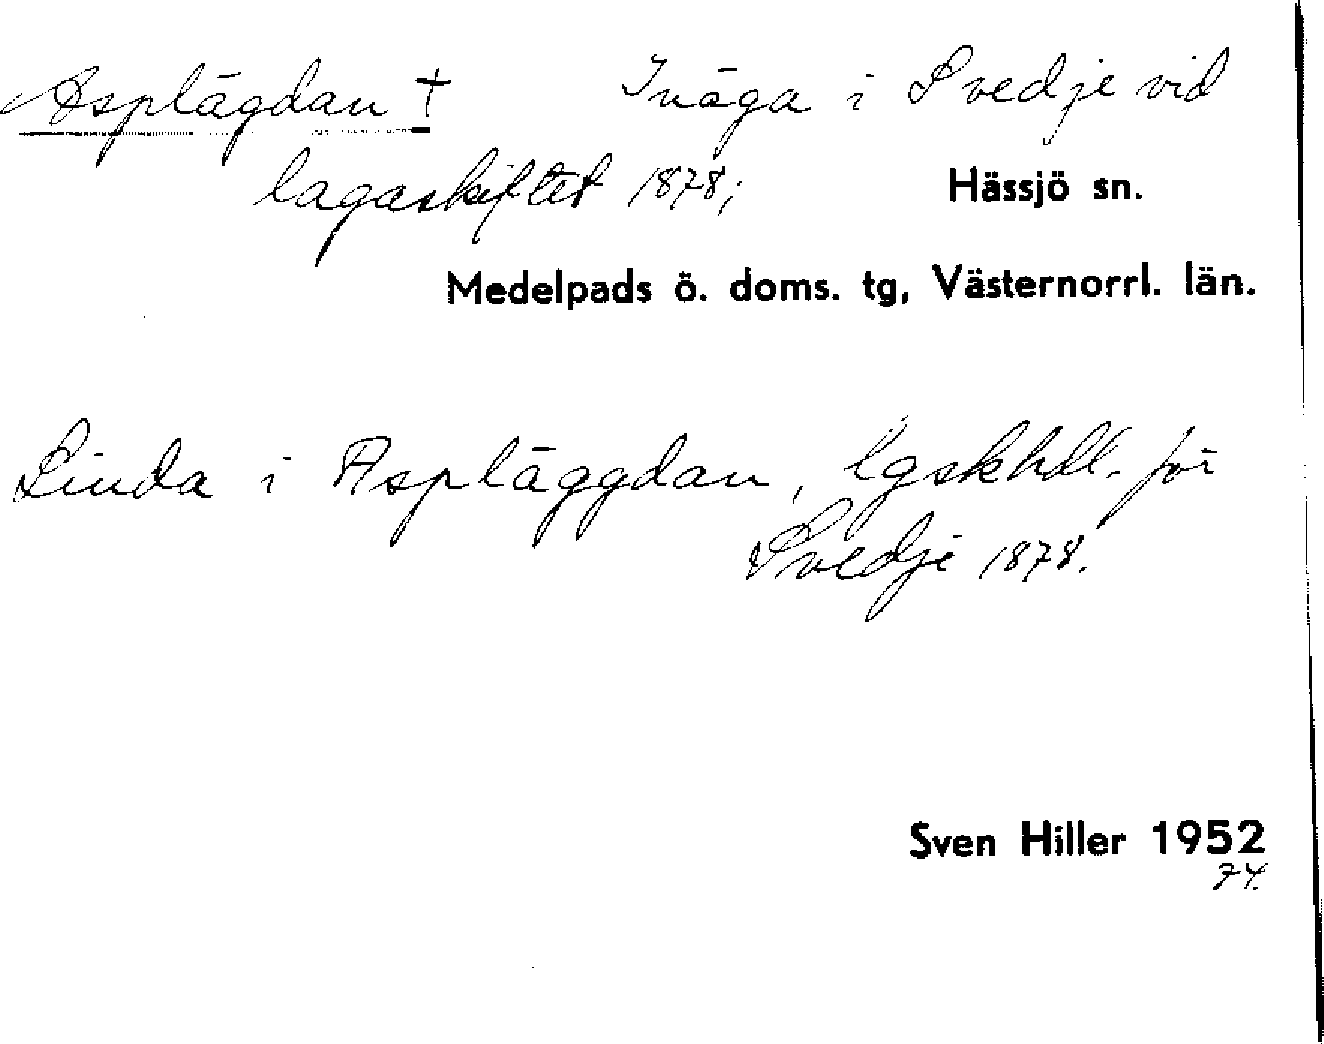 Asplägdan † Inäga i Svedje vid
lagaskiftet 1878;
Hässjö sn.
Medelpads ö. doms. tg, Västernorrl. län.
Linda i Aspläggdan, lgskhdl. för
Svedje 1878.
Sven Hiller 1952
74.